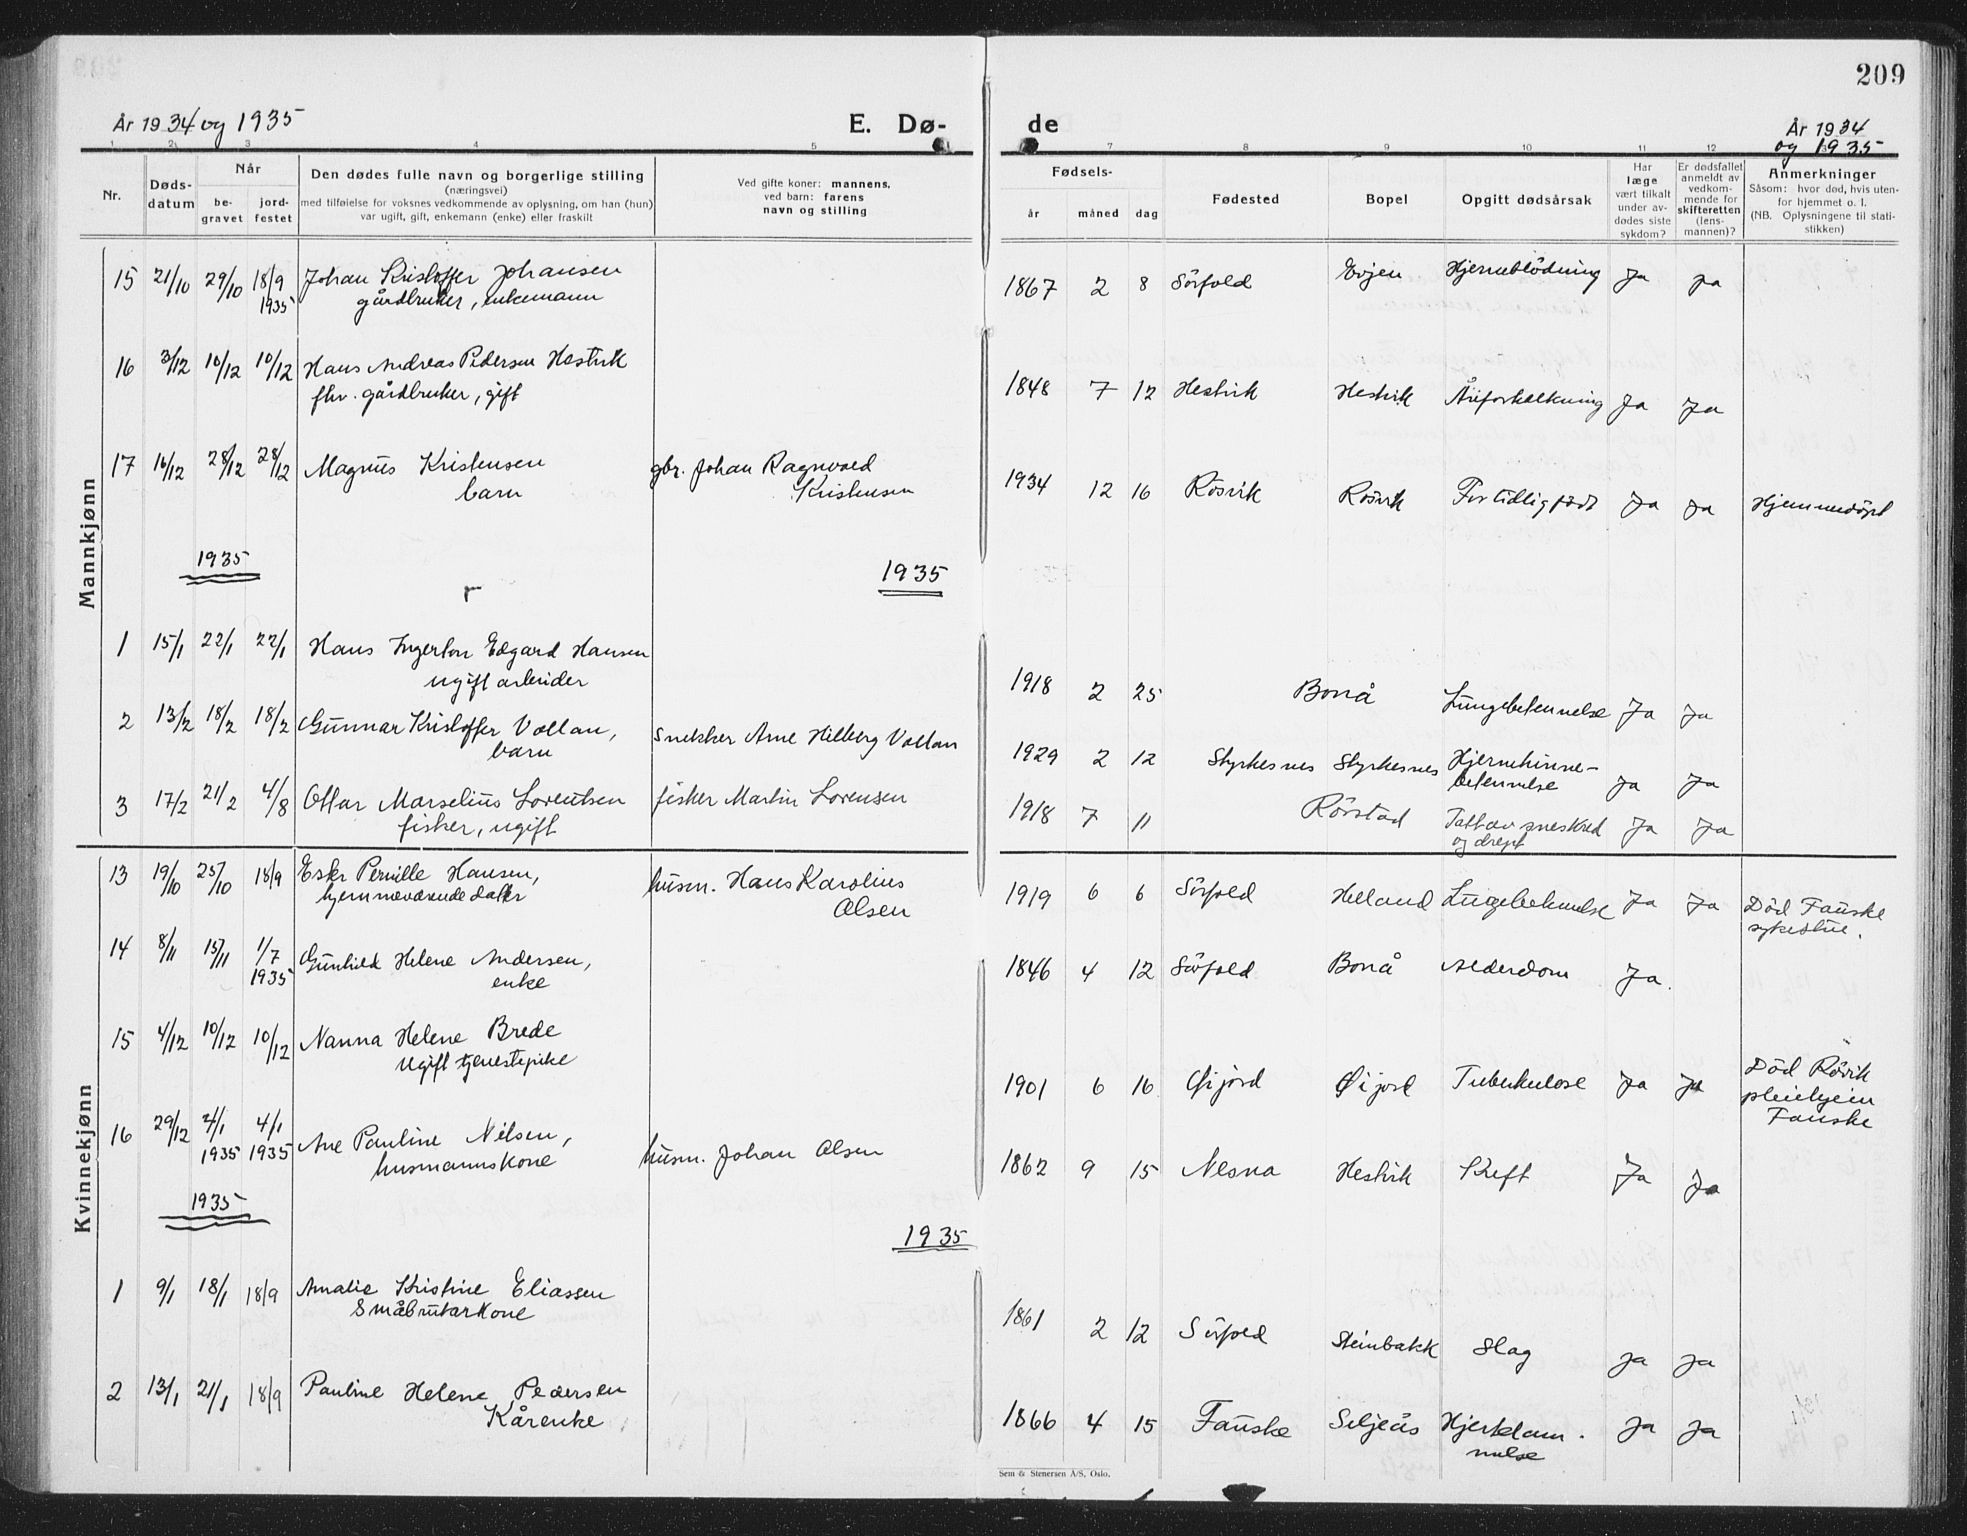 209
År 1934 og 1935
E. Dø-
de
År 1934
og 1935
1 2 3 4 5 7 8 9 10 11 12
Nr.
Døds-
datum
Når
be-
gravet
jord-
festet
Den dødes fulle navn og borgerlige stilling
(næringsvei)
med tilføielse for voksnes vedkommende av oplysning, om han (hun)
var ugift, gift, enkemann (enke) eller fraskilt
Ved gifte koner: mannens,
ved barn: farens
navn og stilling
Fødsels-
år måned dag
Fødested
Bopel
Opgitt dødsårsak
Har
læge
vært tilkalt
under av-
dødes siste
sykdom?
Er dødsfallet
anmeldt av
vedkom-
mende for
skifteretten
(lens-
mannen)?
Anmerkninger
Såsom: hvor død, hvis uten-
for hjemmet o. l.
(NB. Oplysningene til stati-
stikken)
Mannkjønn
15 21/10 29/10 18/9 Johan Kristoffer Johansen 1867 2 8 Sörfold Evjen Hjerneblödning Ja Ja
1935 gårdbruker, enkemann
16 3/12 10/12 10/12 Hans Andreas Pedersen Hestvik 1848 7 12 Hestvik Hestvik Åreforkalkning Ja Ja
fhv. gårdbruker, gift
17 16/12 28/12 28/12 Magnus Kristensen gbr. Johan Ragnvald 1934 12 16 Rösvik Rösvik For tidlig født Ja Ja Hjemmedöpt
barn Kristensen
1935 1935
1 15/1 22/1 22/1 Hans Ingerton Edgard Hansen 1918 2 25 Bonå Lungebetennelse Ja Ja
ugift arbeider
2 13/2 18/2 18/2 Gunnar Kristoffer Vollan, snekker Arne Hilberg Vollan 1929 2 12 Styrkesnes Styrkesnes Hjernehinne-
barn betennelse Ja Ja
3 17/2 21/2 4/8 Ottar Marselius Lorentsen fisker Martin Lorensen 1918 7 11 Rörstad Tatt av sneskred Ja Ja
fisker, ugift og drept
Kvinnekjønn
13 19/10 25/10 18/9 Ester Pernille Hansen, husm. Hans Karolius 1919 6 6 Sörfold Helland Lungebetennelse Ja Ja Död Fauske
hjemmeværende datter Olsen sykestue.
14 8/11 15/11 1/7 Gunhild Helene Andersen, 1846 4 12 Sörfold Bonå Alderdom Ja.
1935 enke
15 4/12 10/12 10/12 Nanna Helene Brede 1901 6 16 Øijord Øijord Tuberkulose Ja Ja Död Rövik
ugift tjenestepike pleiehjem
Fauske
16 29/12 4/1 4/1 Ane Pauline Nilsen, husm. Johan Olsen 1862 9 15 Nesna Hestvik Kreft Ja Ja
1935 1935 husmannskone
1935 1935
1 9/1 18/1 18/9 Amalie Kristine Eliassen 1861 2 12 Sörfold Steinbakk Slag Ja Ja
Småbrukarkone
2 13/1 21/1 18/9 Pauline Helene Pedersen 1866 4 15 Fauske Seljeås Hjertelam- Ja Ja
Kårenke melse
Sem & Stenersen A/S, Oslo.